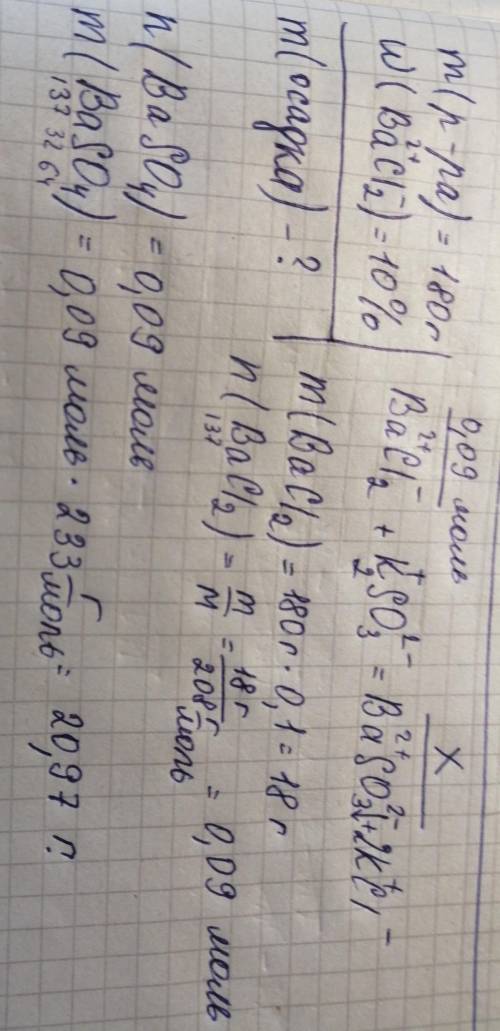 m(р-ра) = 180г
W(Ba²⁺Cl₂⁻) = 10%
m(осадка) - ?
0,09 моль X
Ba²⁺Cl₂⁻ + K₂⁺SO₃²⁻ = Ba²⁺SO₃²⁻↓ + 2K⁺Cl⁻
m(BaCl₂) = 180г · 0,1 = 18г
n(BaCl₂) = m/M = 18г / 208 г/моль = 0,09 моль
137
n(BaSO₄) = 0,09 моль
m(BaSO₄) = 0,09 моль · 233 г/моль = 20,97 г.
137 32 64